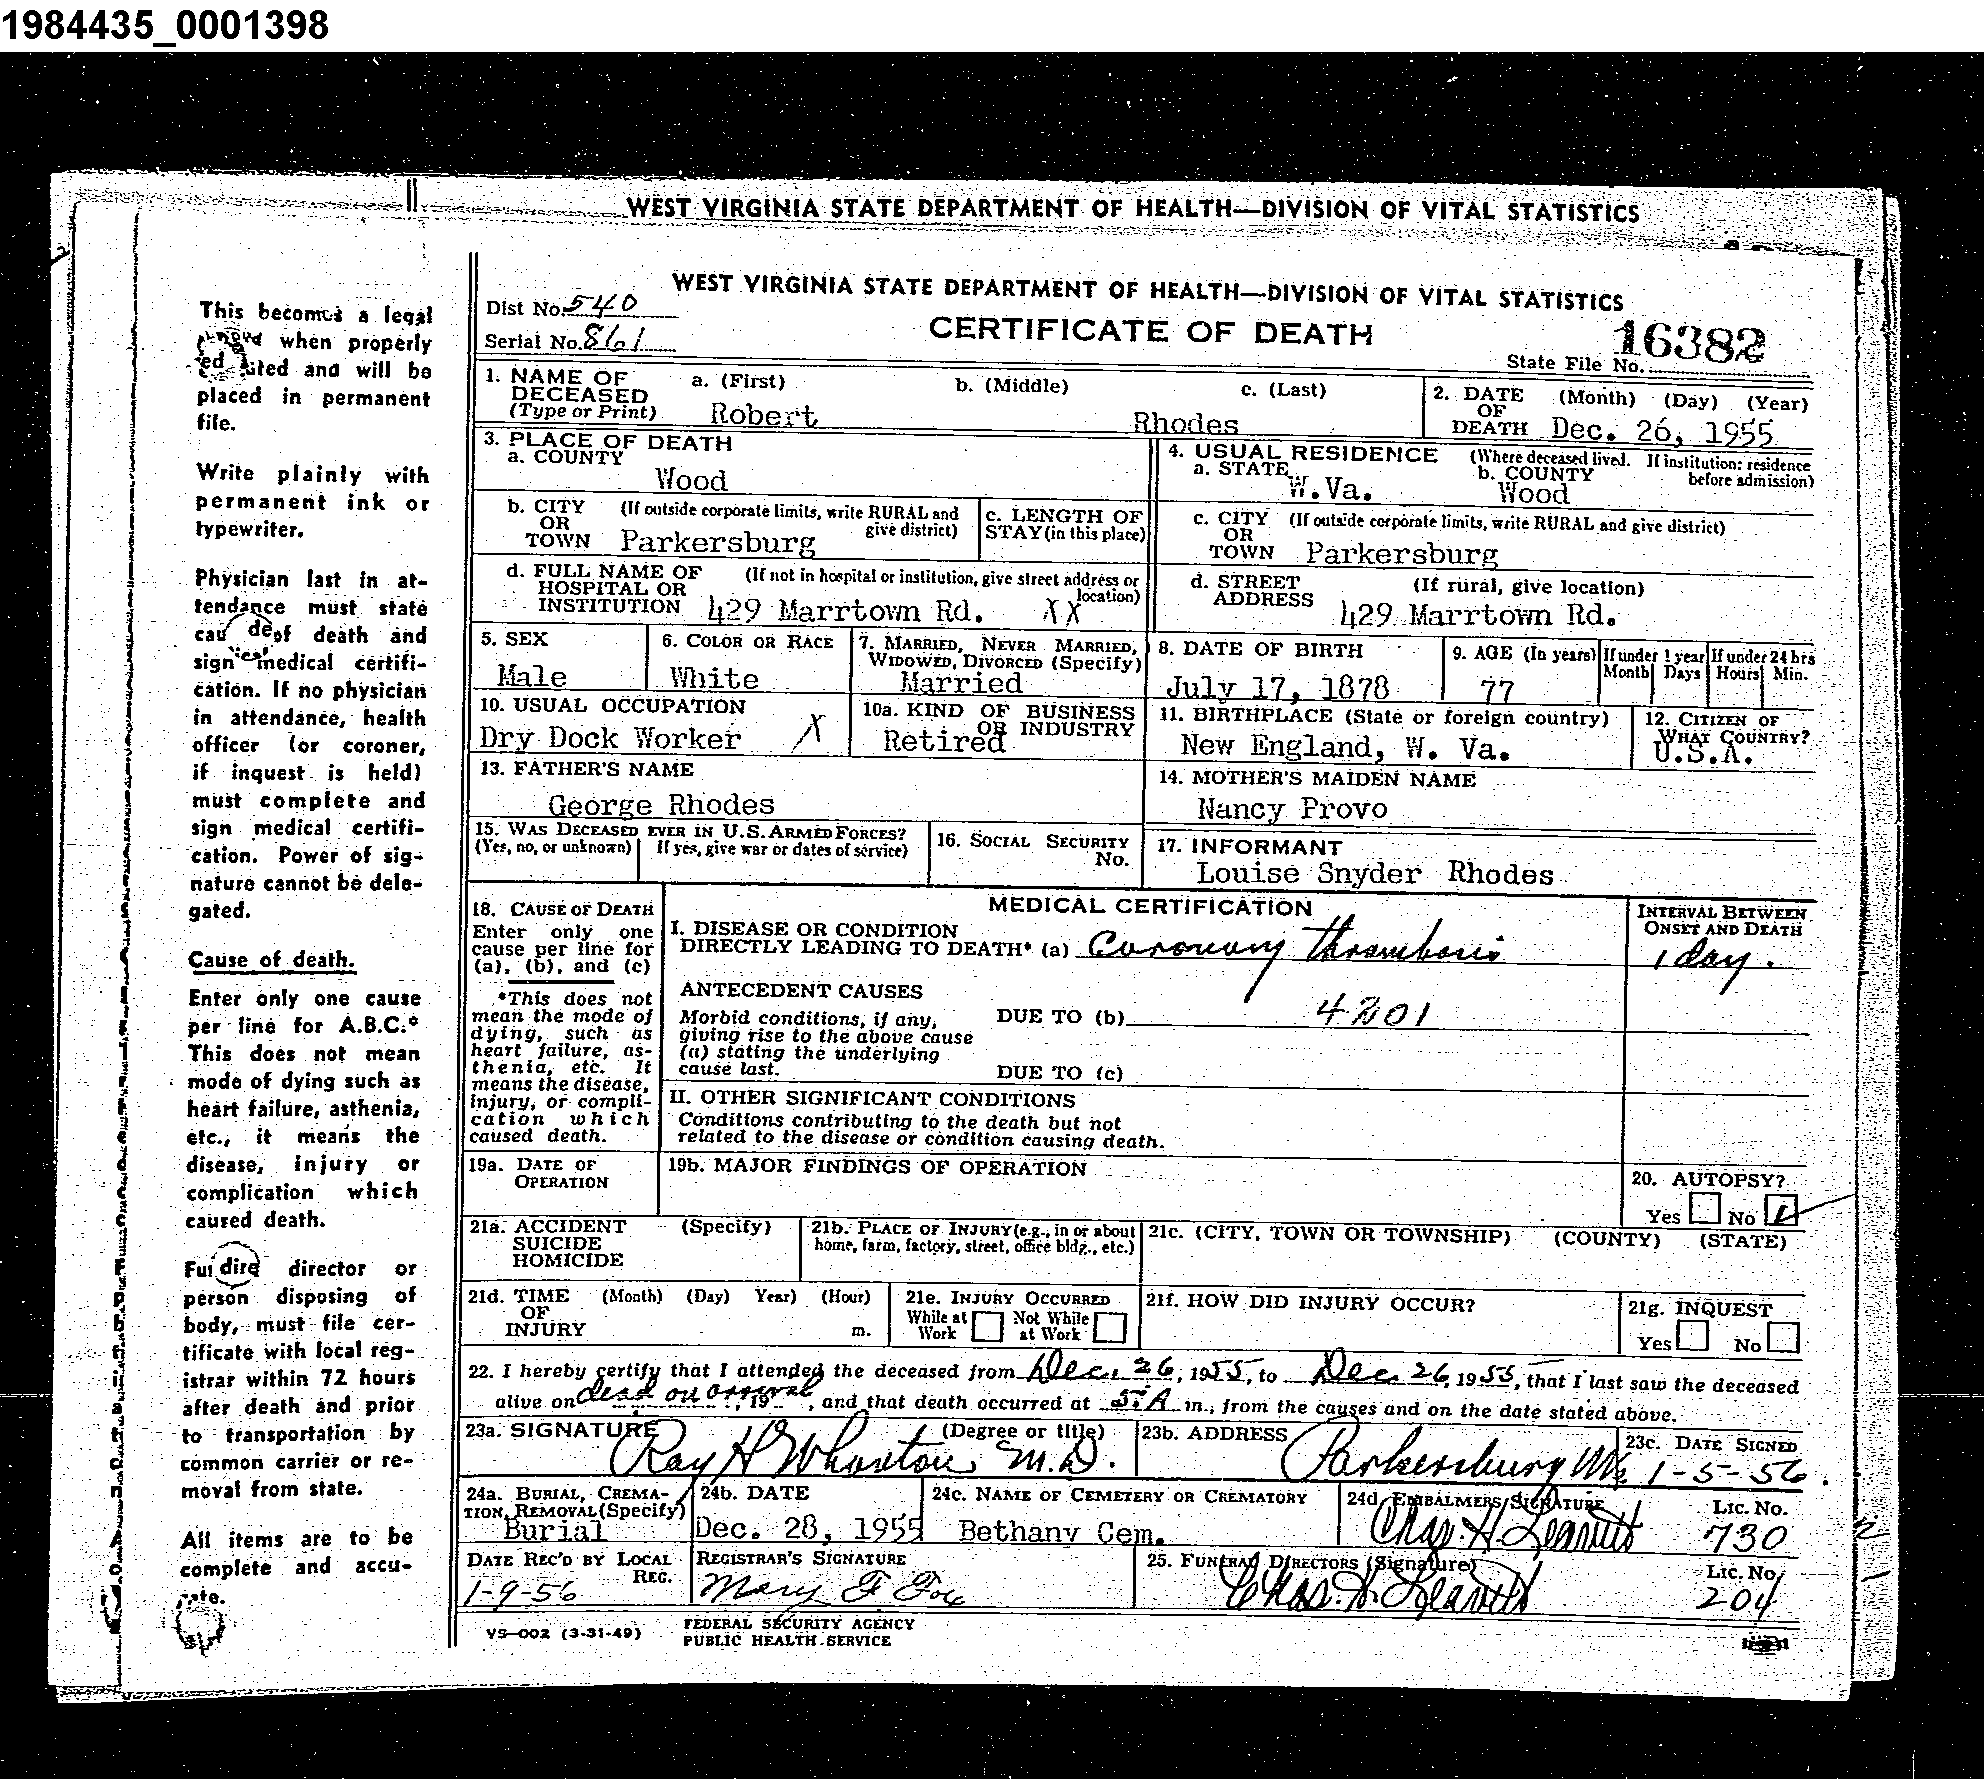 1984435_0001398
WEST VIRGINIA STATE DEPARTMENT OF HEALTH—DIVISION OF VITAL STATISTICS
This becomes a legal
when properly
and will be
placed in permanent
file.
Write plainly with
permanent ink or
typewriter.
Physician last in at-
tendance must state
of death and
sign medical certifi-
cation. If no physician
in attendance, health
officer (or coroner,
if inquest is held)
must complete and
sign medical certifi-
cation. Power of sig-
nature cannot be dele-
gated.
Cause of death.
Enter only one cause
per line for A.B.C.*
This does not mean
mode of dying such as
heart failure, asthenia,
etc., it means the
disease, injury or
complication which
caused death.
director or
person disposing of
body, must file cer-
tificate with local reg-
istrar within 72 hours
after death and prior
to transportation by
common carrier or re-
moval from state.
All items are to be
complete and accu-
rate.
WEST VIRGINIA STATE DEPARTMENT OF HEALTH—DIVISION OF VITAL STATISTICS
Dist No. 540
CERTIFICATE OF DEATH
Serial No. 861
State File No. 16382
1. NAME OF DECEASED (Type or Print) a. (First) b. (Middle) c. (Last)
Robert Rhodes
2. DATE OF DEATH (Month) (Day) (Year)
Dec. 26, 1955
3. PLACE OF DEATH
a. COUNTY
Wood
4. USUAL RESIDENCE (Where deceased lived. If institution: residence before admission)
a. STATE W.Va. b. COUNTY Wood
b. CITY OR TOWN (If outside corporate limits, write RURAL and give district)
Parkersburg
c. LENGTH OF STAY (in this place)
c. CITY OR TOWN (If outside corporate limits, write RURAL and give district)
Parkersburg
d. FULL NAME OF HOSPITAL OR INSTITUTION (If not in hospital or institution, give street address or location)
429 Marrtown Rd. XX
d. STREET ADDRESS (If rural, give location)
429 Marrtown Rd.
5. SEX
Male
6. COLOR OR RACE
White
7. MARRIED, NEVER MARRIED, WIDOWED, DIVORCED (Specify)
Married
8. DATE OF BIRTH
July 17, 1878
9. AGE (In years)
77
If under 1 year Month Days
If under 24 hrs Hours Min.
10. USUAL OCCUPATION
Dry Dock Worker X
10a. KIND OF BUSINESS OR INDUSTRY
Retired
11. BIRTHPLACE (State or foreign country)
New England, W. Va.
12. CITIZEN OF WHAT COUNTRY?
U.S.A.
13. FATHER'S NAME
George Rhodes
14. MOTHER'S MAIDEN NAME
Nancy Provo
15. WAS DECEASED EVER IN U.S. ARMED FORCES?
(Yes, no, or unknown) If yes, give war or dates of service)
16. SOCIAL SECURITY No.
17. INFORMANT
Louise Snyder Rhodes
18. CAUSE OF DEATH
Enter only one
cause per line for
(a), (b), and (c)
*This does not
mean the mode of
dying, such as
heart failure, as-
thenia, etc. It
means the disease,
injury, or compli-
cation which
caused death.
MEDICAL CERTIFICATION
I. DISEASE OR CONDITION
DIRECTLY LEADING TO DEATH* (a) Coronary Thrombosis
INTERVAL BETWEEN ONSET AND DEATH
1 day.
ANTECEDENT CAUSES
Morbid conditions, if any,
giving rise to the above cause
(a) stating the underlying
cause last.
DUE TO (b) 4201
DUE TO (c)
II. OTHER SIGNIFICANT CONDITIONS
Conditions contributing to the death but not
related to the disease or condition causing death.
19a. DATE OF OPERATION
19b. MAJOR FINDINGS OF OPERATION
20. AUTOPSY?
Yes No
21a. ACCIDENT SUICIDE HOMICIDE (Specify)
21b. PLACE OF INJURY (e.g., in or about home, farm, factory, street, office bldg., etc.)
21c. (CITY, TOWN OR TOWNSHIP) (COUNTY) (STATE)
21d. TIME OF INJURY (Month) (Day) Year) (Hour) m.
21e. INJURY OCCURRED
While at Work Not While at Work
21f. HOW DID INJURY OCCUR?
21g. INQUEST
Yes No
22. I hereby certify that I attended the deceased from Dec. 26, 1955, to Dec. 26, 1955, that I last saw the deceased
alive on dead on arrival, 19 , and that death occurred at 5:A m., from the causes and on the date stated above.
23a. SIGNATURE (Degree or title)
Ray H Wharton M.D.
23b. ADDRESS
Parkersburg
23c. DATE SIGNED
1-5-56.
24a. BURIAL, CREMA-
TION, REMOVAL (Specify)
Burial
24b. DATE
Dec. 28, 1955
24c. NAME OF CEMETERY OR CREMATORY
Bethany Cem.
24d. EMBALMERS SIGNATURE
Chas. H. Leavitt
Lic. No.
730
DATE REC'D BY LOCAL REG.
1-9-56
REGISTRAR'S SIGNATURE
Mary F. Fox
25. FUNERAL DIRECTORS (Signature)
Chas. H. Leavitt
Lic. No.
204
VS—002 (3-31-49)
FEDERAL SECURITY AGENCY
PUBLIC HEALTH SERVICE